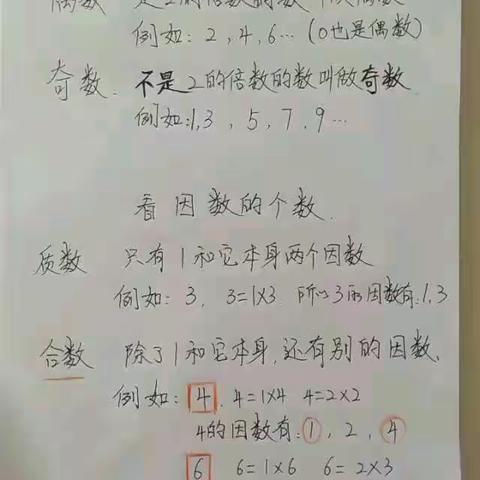 偶数 是2的倍数的数
例如：2，4，6…（0也是偶数）
奇数. 不是2的倍数的数叫做奇数
例如:1,3，5，7，9…
看因数的个数.
质数 只有1和它本身两个因数
例如：3，3=1×3. 所以3的因数有:1,3
合数 除了1和它本身,还有别的因数、
例如：4. 4=1×4 4=2×2
4的因数有:①，2，④
6 6=1×6 6=2×3